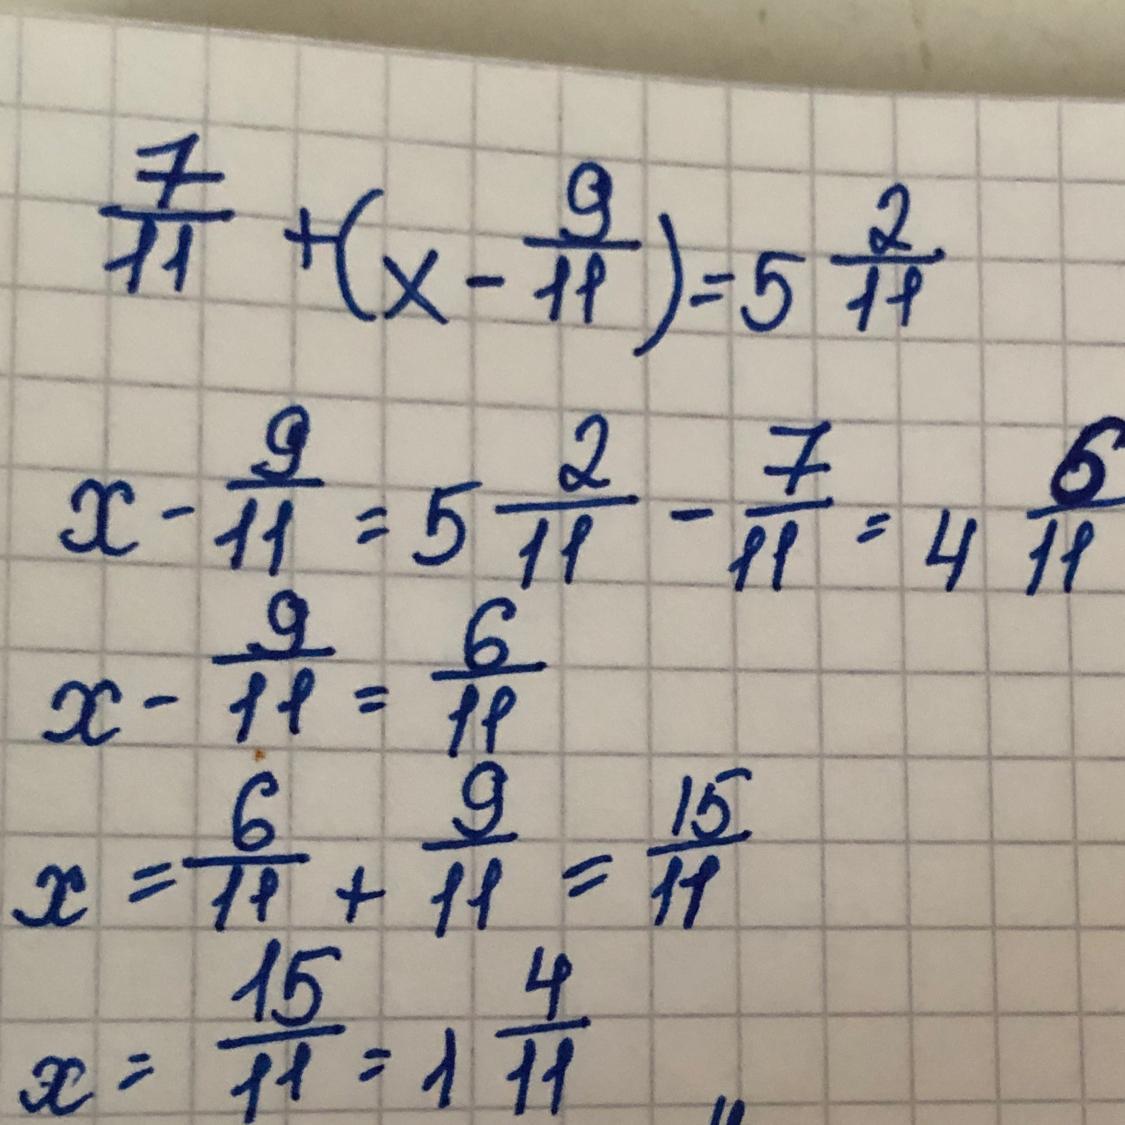 7/11 + (x - 9/11) = 5 2/11
x - 9/11 = 5 2/11 - 7/11 = 4 6/11
x - 9/11 = 6/11
x = 6/11 + 9/11 = 15/11
x = 15/11 = 1 4/11